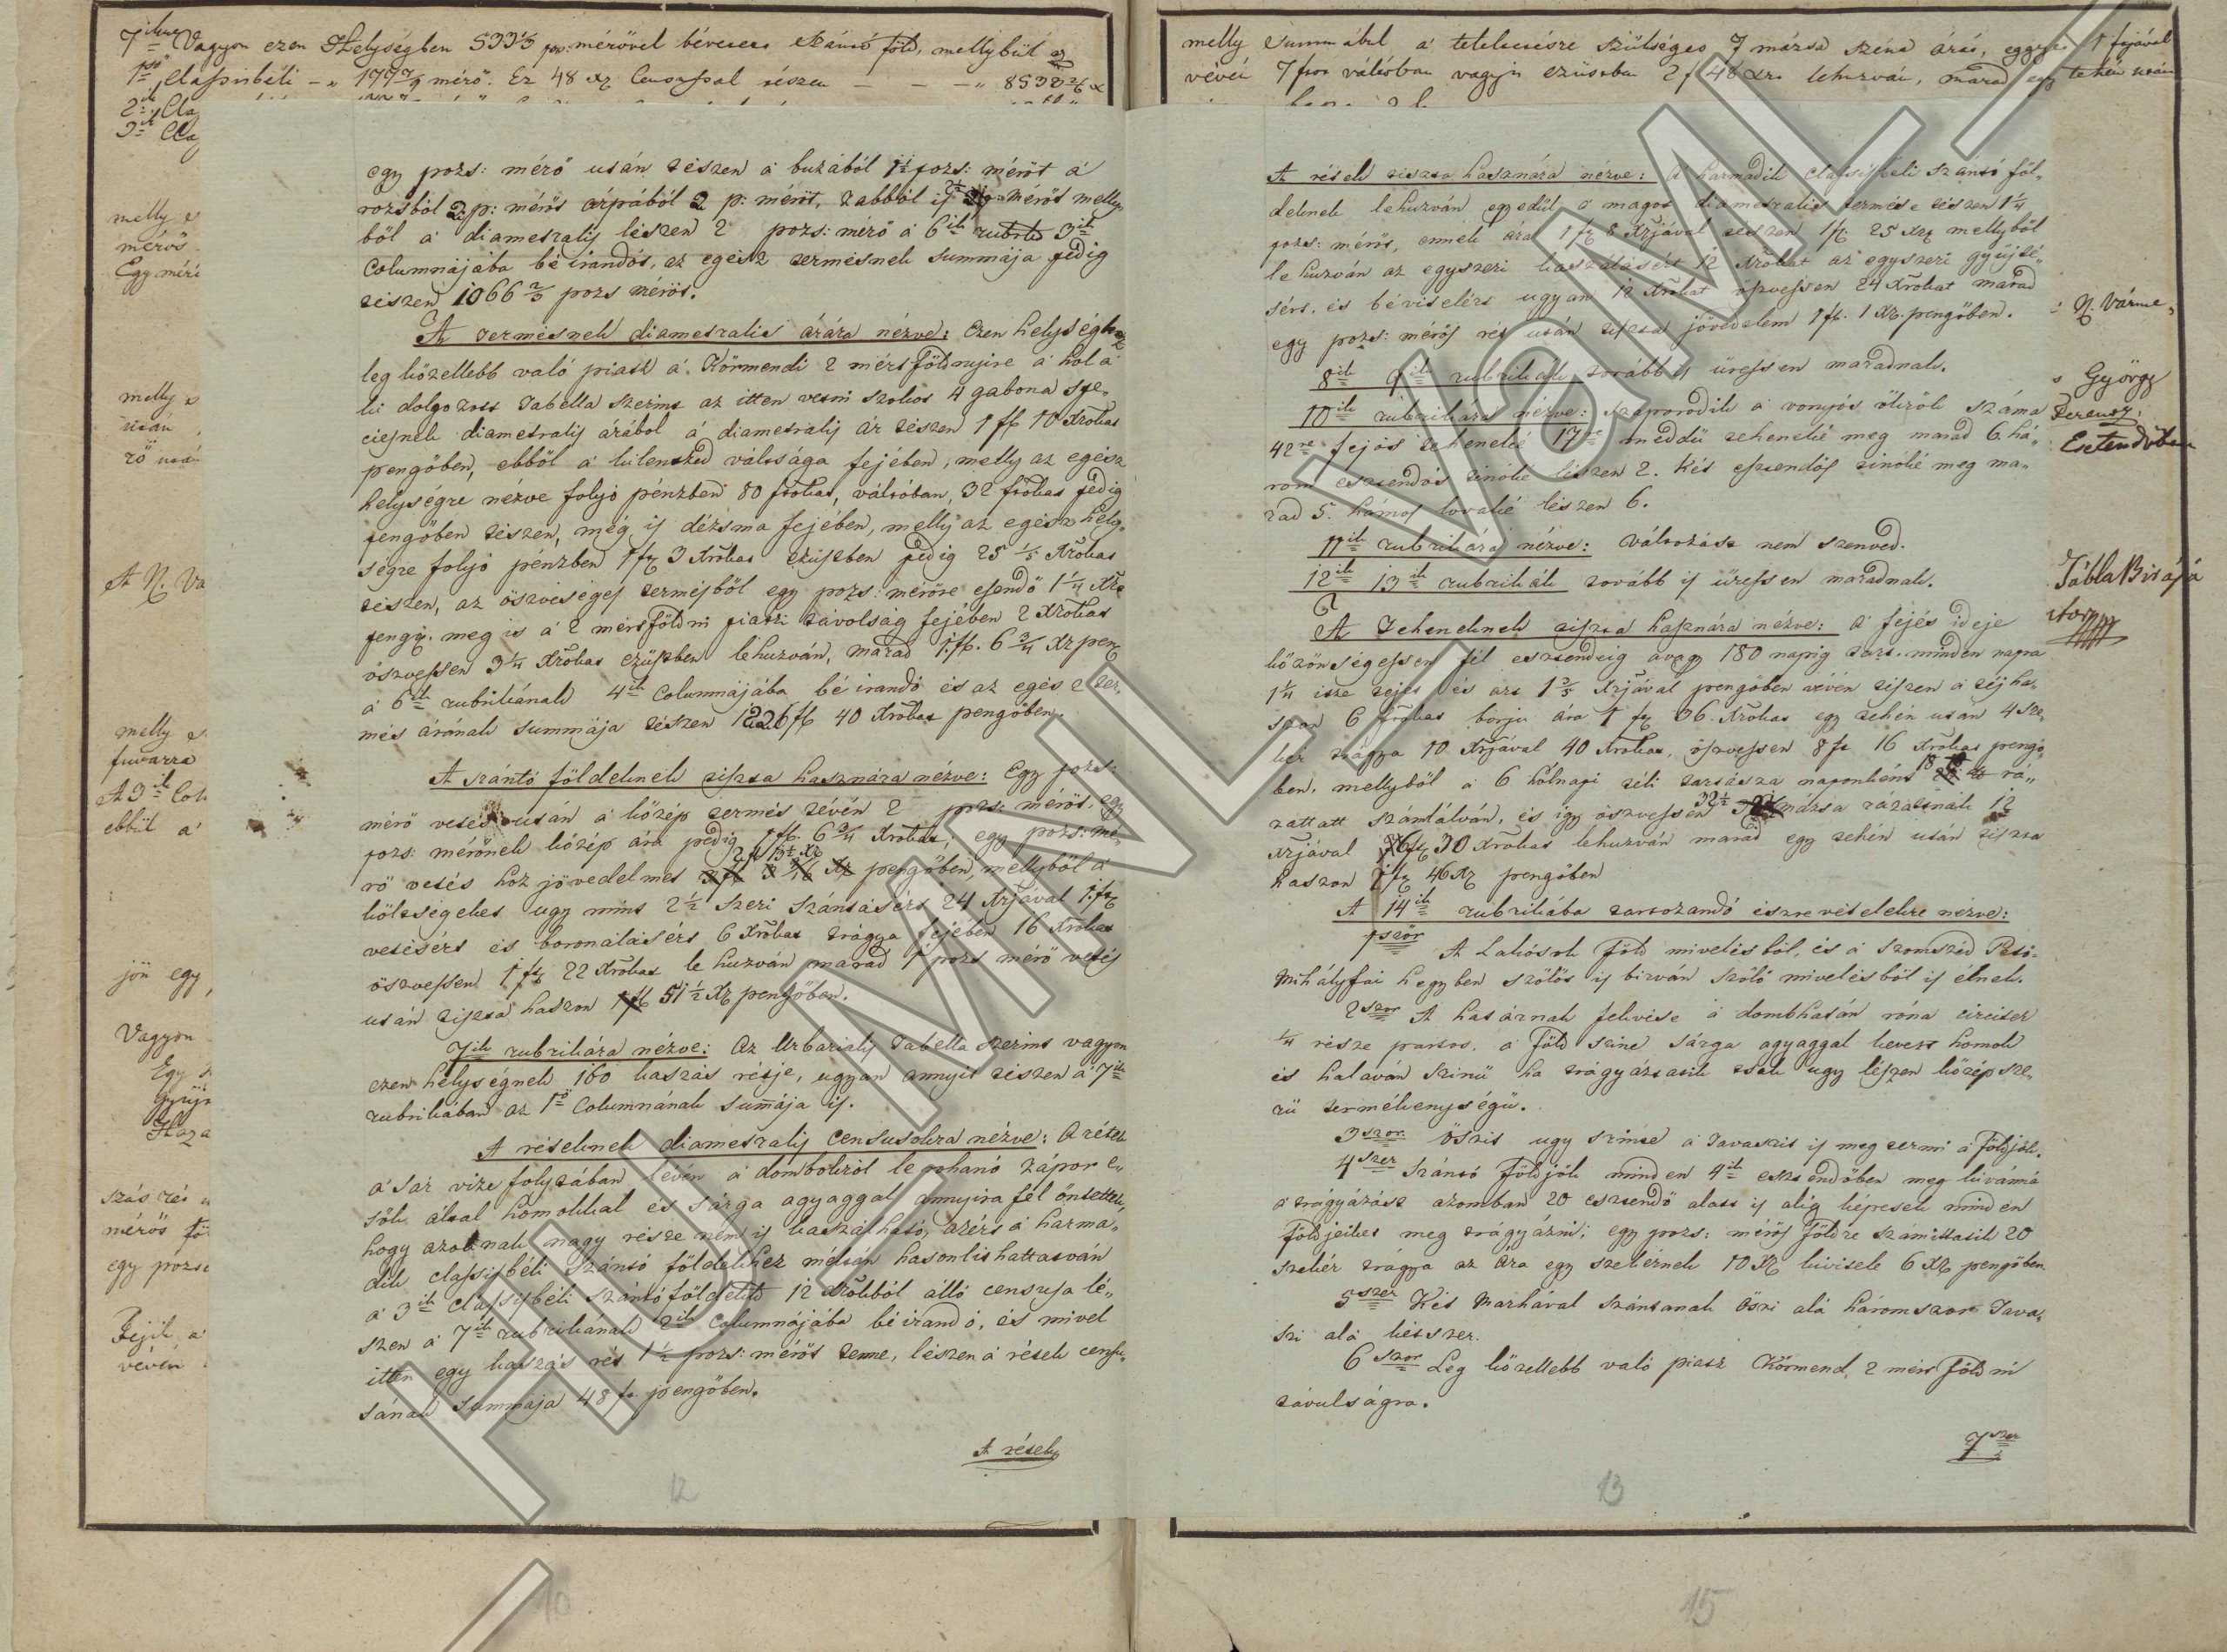 7ik Vagyon ezen Helységben 533 1/3 pos: mérővel bévetett szántó föld, mellybül az
1ső Classisbéli 177 7/9 mérő. Ez 48 xr Censussal tészen 8533 2/6 x
2ik Cla
3ik Cla
melly
mérős
Egy méri
melly
után
rő után
A N. Va
melly
fuvarra
A 3ik Col
ebbül a'
jön egy
Vagyon
Egy
gyűjt
Haza
szás rét
mérős föl
egy pozso
Fejik a'
vévén
egy pozs: mérő után tészen a buzából 1 1/2 pozs: mérőt a
rozsból 2 p: mérőt árpából 2 p: mérőt, zabból is 2 1/2 mérőt melly
ből a diametralis lészen 2 pozs: mérő a 6ik rubrika 3ik
Columnájába bé irandó, az egész termésnek summája pedig
tészen 1066 2/3 pozs mérőt.
A termésnek diametralis árára nézve: Ezen helységhez
leg közellebb való piatz a Körmendi 2 mért földnyire a hol a
ki dolgozott Tabella szerint az itten vetni szokot 4 gabona spe„
ciesnek diametralis árából a diametralis ár tészen 1 ft 10 Xrokat
pengőben, ebből a kilentzed váltsága fejében, melly az egész
helységre nézve folyó pénzben 80 frokat, váltóban, 32 frokat pedig
pengőben tészen, még is dézsma fejében, melly az egész hely„
ségre folyó pénzben 1 fr 3 Xrokat ezüstben pedig 25 1/5 Xrokat
tészen, az öszveséges termésből egy pozs: mérőre esendő 1 1/4 Xrt
pengő. meg is a 2 mértföldni piatzi távolság fejében 2 Xrokat
öszvessen 3 1/4 Xrokat ezüstben lehuzván, marad 1 ft. 6 3/4 Xr peng
a 6ik rubrikának 4ik Columnájába bé irandó és az egész ter„
més árának summája tészen 1226 ft 40 Xrokat pengőben.
A szántó földeknek tiszta hasznára nézve: Egy pozs:
mérő vetés után a közép termés lévén 2 pozs: mérőt, egy
pozs: mérőnek közép ára pedig 1 ft. 6 3/4 Xrokat, egy pozs: mé„
2 ft 13 1/2 Xr
rő vetés hoz jövedelmet 3 ft 3 3/16 Xr pengőben, mellyből a
költségeket ugy mint 2 1/2 szeri szántásért 24 Xrjával 1 fr
vetésért és boronálásért 6 Xrokat trágya fejében 16 Xrokat
öszvessen 1 fr 22 Xrokat le huzván marad 1 pozs mérő vetés
után tiszta haszon 1 ft 51 1/2 Xr pengőben.
7ik rubrikára nézve: Az Urbarialis Tabella szerint vagyon
ezen helységnek 160 kaszás rétje, ugyan annyit tészen a 7ik
rubrikában az 1ső Columnának summája is.
A réteknek diametralis Censusokra nézve: A rétek
a' Sár vize folytában lévén a dombokról le rohanó zápor e„
sők által homokkal és sárga agyaggal annyira fél öntettek,
hogy azoknak nagy része nem is kaszálható, azért a harma„
dik classisbéli szántó földekhez méltán hasonlithattatván
a 3ik classisbéli szántó földektül 12 Xrokból álló censusa lé„
szen a 7ik rubrikának 2ik Columnájába béirandó, és mivel
itten egy kaszás rét 1 1/2 pozs: mérőt tenne, lészen a rétek censu„
sának Summája 48 fr pengőben.
A rétek
12
10
melly Summábul a' teleltetésre szükséges 7 mázsa széna árát, eggyet 1 fjával
vévén 7 frot váltóban vagyis ezüstben 2 f 48 xrt lehuzván, marad egy tehén után
A rétek tiszta hasznára nézve: A harmadik classisbéli szántó föl„
deknek lehuzván egyedül a magot diametralis termése tészen 1 1/4
pozs: mérőt, ennek ára 1 fr 8 Xrjával tészen 1 ft. 25 Xrt mellyből
le huzván az egyszeri kaszálásért 12 Xrokat az egyszeri gyüjté„
sért, és béviselért ugyan 12 Xrokat öszvessen 24 Xrokat marad
egy pozs: mérős rét után tiszta jövedelem 1 ft. 1 Xr. pengőben.
8ik 9ik rubrikák tovább is üressen maradnak.
10ik rubrikára nézve: Szaporodik a vonyós ökrök száma
42re fejős tehenekié 17re meddü tehenekié meg marad 6. há„
rom esztendős tinókié lészen 2. Két esztendős tinókié meg ma„
rad 5. hámos lovaké lészen 6.
11ik rubrikára nézve: Változást nem szenved.
12ik 13ik rubrikák tovább is üressen maradnak.
A Teheneknek tiszta hasznára nézve: A fejés ideje
közönségessen fél esztendeig avagy 180 napig tart. minden napra
1 1/4 itze tejet és azt 1 3/5 Xrjával pengőben vévén tészen a téj ha„
szon 6 frokat borju ára 1 fr 36. Xrokat egy tehén után 4 sze„
kér trágya 10 Xrjával 40 Xrokat, öszvessen 8 fr 16 Xrokat pengő
ben, mellyből a 6 hólnapi téli tartásra naponként 18 ra„
zattatt számlálván, és így öszvessen 32 1/2 mázsa rázatnák 12
Xrjával 6 fr 30 Xrokat lehuzván marad egy tehén után tiszta
haszon 1 fr 46 Xr pengőben
A 14ik rubrikába tartozandó észrevételekre nézve:
1ször A Lakosok Föld mivelésből, és a szomszéd Pető„
Mihályfai hegyben szőlőt is birván szőlő mivelésből is élnek.
2szor A határnak fekvése a dombhatán róna circiter
1/4 része partos. a Föld szine sárga agyaggal kevert homok
és halaván szinü ha trágyáztatik tsak ugy lészen közép sze„
rü termékenységü.
3szor Őszit ugy szinte a Tavaszit is meg termi a földjök.
4szer Szántó Földjök minden 4ik esztendőben meg kivánná
a trágyázást azomban 20 esztendő alatt is alig képesek minden
Földjeiket meg trágyázni; egy pozs: mérős Földre számittatik 20
szekér trágya az ára egy szekérnek 10 Xr kivitele 6 Xr pengőben
5ször Két Marhával szántanak őszi alá háromszor Tava„
szi alá kétszer.
6szor Leg közellebb való piatz Körmend, 2 mért Föld ni
távulságra.
7szer
13
15
N. Várme„
György
Ferencz
Esztendőben
Tábla Birája